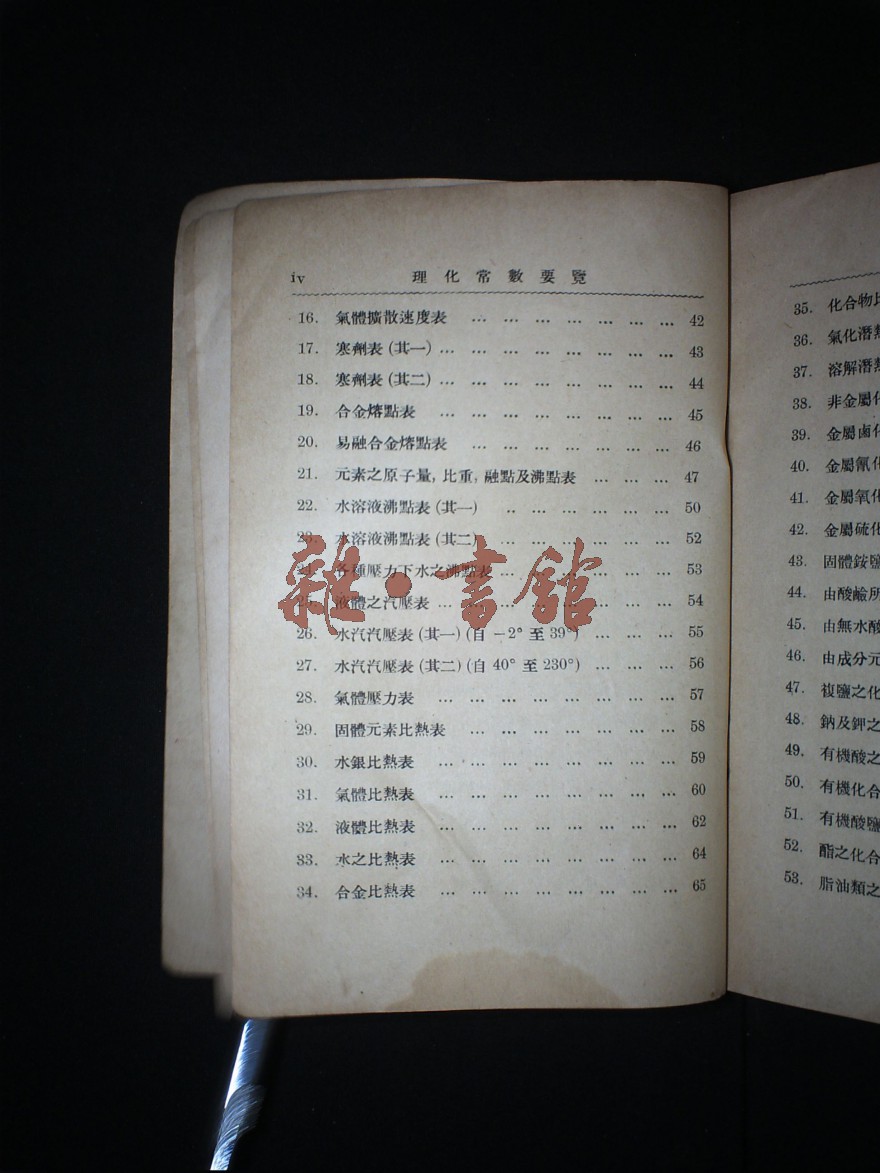 iv 理化常數要覽
16. 氣體擴散速度表 … … … … … … … 42
17. 寒劑表 (其一) … … … … … … … … 43
18. 寒劑表 (其二) … … … … … … … … 44
19. 合金熔點表 … … … … … … … … 45
20. 易融合金熔點表 … … … … … … … 46
21. 元素之原子量, 比重, 融點及沸點表 … … … 47
22. 水溶液沸點表 (其一) … … … … … … 50
23. 水溶液沸點表 (其二) … … … … … … … 52
24. 各種壓力下水之沸點表 … … … … … … 53
25. 液體之汽壓表 … … … … … … … … 54
26. 水汽汽壓表 (其一) (自 －2° 至 39°) … … … 55
27. 水汽汽壓表 (其二) (自 40° 至 230°) … … … 56
28. 氣體壓力表 … … … … … … … … 57
29. 固體元素比熱表 … … … … … … … 58
30. 水銀比熱表 … … … … … … … … 59
31. 氣體比熱表 … … … … … … … … 60
32. 液體比熱表 … … … … … … … … 62
33. 水之比熱表 … … … … … … … … 64
34. 合金比熱表 … … … … … … … … 65
雜·書館
35. 化合物比
36. 氣化潛熱
37. 溶解潛熱
38. 非金屬化
39. 金屬鹵化
40. 金屬氰化
41. 金屬氧化
42. 金屬硫化
43. 固體銨鹽
44. 由酸鹼所
45. 由無水酸
46. 由成分元
47. 複鹽之化
48. 鈉及鉀之
49. 有機酸之
50. 有機化合
51. 有機酸鹽
52. 酯之化合
53. 脂油類之